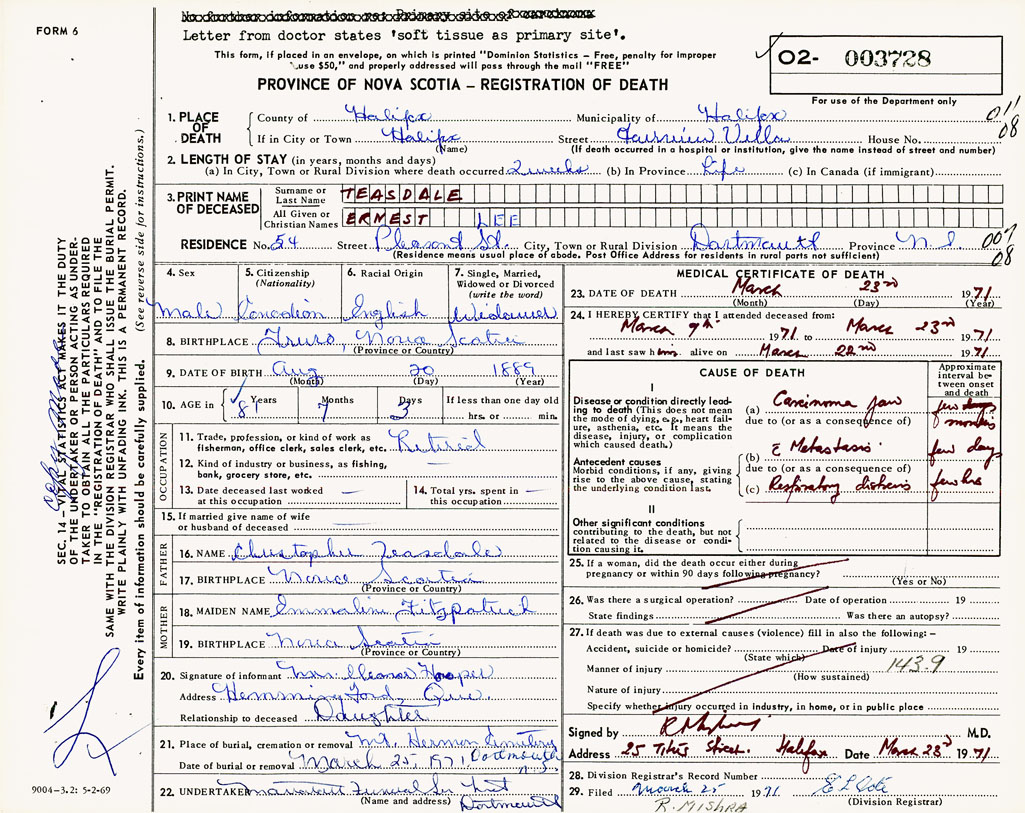 Letter from doctor states 'soft tissue as primary site'.
FORM 6
This form, if placed in an envelope, on which is printed "Dominion Statistics – Free, penalty for improper
use $50," and properly addressed will pass through the mail "FREE"
O2- 003728
PROVINCE OF NOVA SCOTIA – REGISTRATION OF DEATH
For use of the Department only
1. PLACE OF DEATH
County of Halifax Municipality of Halifax 011
08
If in City or Town Halifax Street Villa House No.
(Name) (If death occurred in a hospital or institution, give the name instead of street and number)
2. LENGTH OF STAY (in years, months and days)
(a) In City, Town or Rural Division where death occurred 2 weeks (b) In Province Life (c) In Canada (if immigrant)
3. PRINT NAME OF DECEASED
Surname or Last Name TEASDALE
All Given or Christian Names ERNEST LEE
RESIDENCE No. 54 Street Pleasant St. City, Town or Rural Division Dartmouth Province N.S. 007
08
(Residence means usual place of abode. Post Office Address for residents in rural parts not sufficient)
4. Sex Male
5. Citizenship (Nationality) Canadian
6. Racial Origin English
7. Single, Married, Widowed or Divorced (write the word) Widowed
8. BIRTHPLACE Truro, Nova Scotia
(Province or Country)
9. DATE OF BIRTH Aug 20 1889
(Month) (Day) (Year)
10. AGE in Years 81 Months 7 Days 3 If less than one day old
hrs. or min.
OCCUPATION
11. Trade, profession, or kind of work as
fisherman, office clerk, sales clerk, etc. Retired
12. Kind of industry or business, as fishing,
bank, grocery store, etc. —
13. Date deceased last worked
at this occupation —
14. Total yrs. spent in
this occupation —
15. If married give name of wife
or husband of deceased —
FATHER
16. NAME Christopher Teasdale
17. BIRTHPLACE Nova Scotia
(Province or Country)
MOTHER
18. MAIDEN NAME Emmaline Fitzpatrick
19. BIRTHPLACE Nova Scotia
(Province or Country)
20. Signature of informant Mrs. Eleanor Hooper
Address Hemmingford, Que.
Relationship to deceased Daughter
21. Place of burial, cremation or removal Mt. Hermon Cemetery
Dartmouth N.S.
Date of burial or removal March 25, 1971
22. UNDERTAKER Funeral
(Name and address) Dartmouth
MEDICAL CERTIFICATE OF DEATH
23. DATE OF DEATH March 23rd 1971
(Month) (Day) (Year)
24. I HEREBY CERTIFY that I attended deceased from:
March 9th 1971 to March 23rd 1971
and last saw him alive on March 22nd 1971
CAUSE OF DEATH
Approximate interval between onset and death
I
Disease or condition directly leading to death (This does not mean the mode of dying, e.g., heart failure, asthenia, etc. It means the disease, injury, or complication which caused death.)
(a) Carcinoma Jaw few months
due to (or as a consequence of)
Antecedent causes
Morbid conditions, if any, giving rise to the above cause, stating the underlying condition last.
(b) c̄ Metastasis few days
due to (or as a consequence of)
(c) Respiratory distress few hrs
II
Other significant conditions
contributing to the death, but not related to the disease or condition causing it.
25. If a woman, did the death occur either during
pregnancy or within 90 days following pregnancy?
(Yes or No)
26. Was there a surgical operation? Date of operation 19
State findings Was there an autopsy?
27. If death was due to external causes (violence) fill in also the following: –
Accident, suicide or homicide? Date of injury 19
(State which)
Manner of injury 143.9
(How sustained)
Nature of injury
Specify whether injury occurred in industry, in home, or in public place
Signed by M.D.
Address 25 Titus Street. Halifax Date March 23d 1971
28. Division Registrar's Record Number
29. Filed March 25 1971
(Division Registrar)
R. MISHRA
SEC. 14 – VITAL STATISTICS ACT MAKES IT THE DUTY
OF THE UNDERTAKER OR PERSON ACTING AS UNDER-
TAKER TO OBTAIN ALL THE PARTICULARS REQUIRED
IN THE "REGISTRATION OF DEATH" AND TO FILE THE
SAME WITH THE DIVISION REGISTRAR WHO SHALL ISSUE THE BURIAL PERMIT.
WRITE PLAINLY WITH UNFADING INK. THIS IS A PERMANENT RECORD.
Every item of information should be carefully supplied. (See reverse side for instructions.)
9004-3.2: 5-2-69